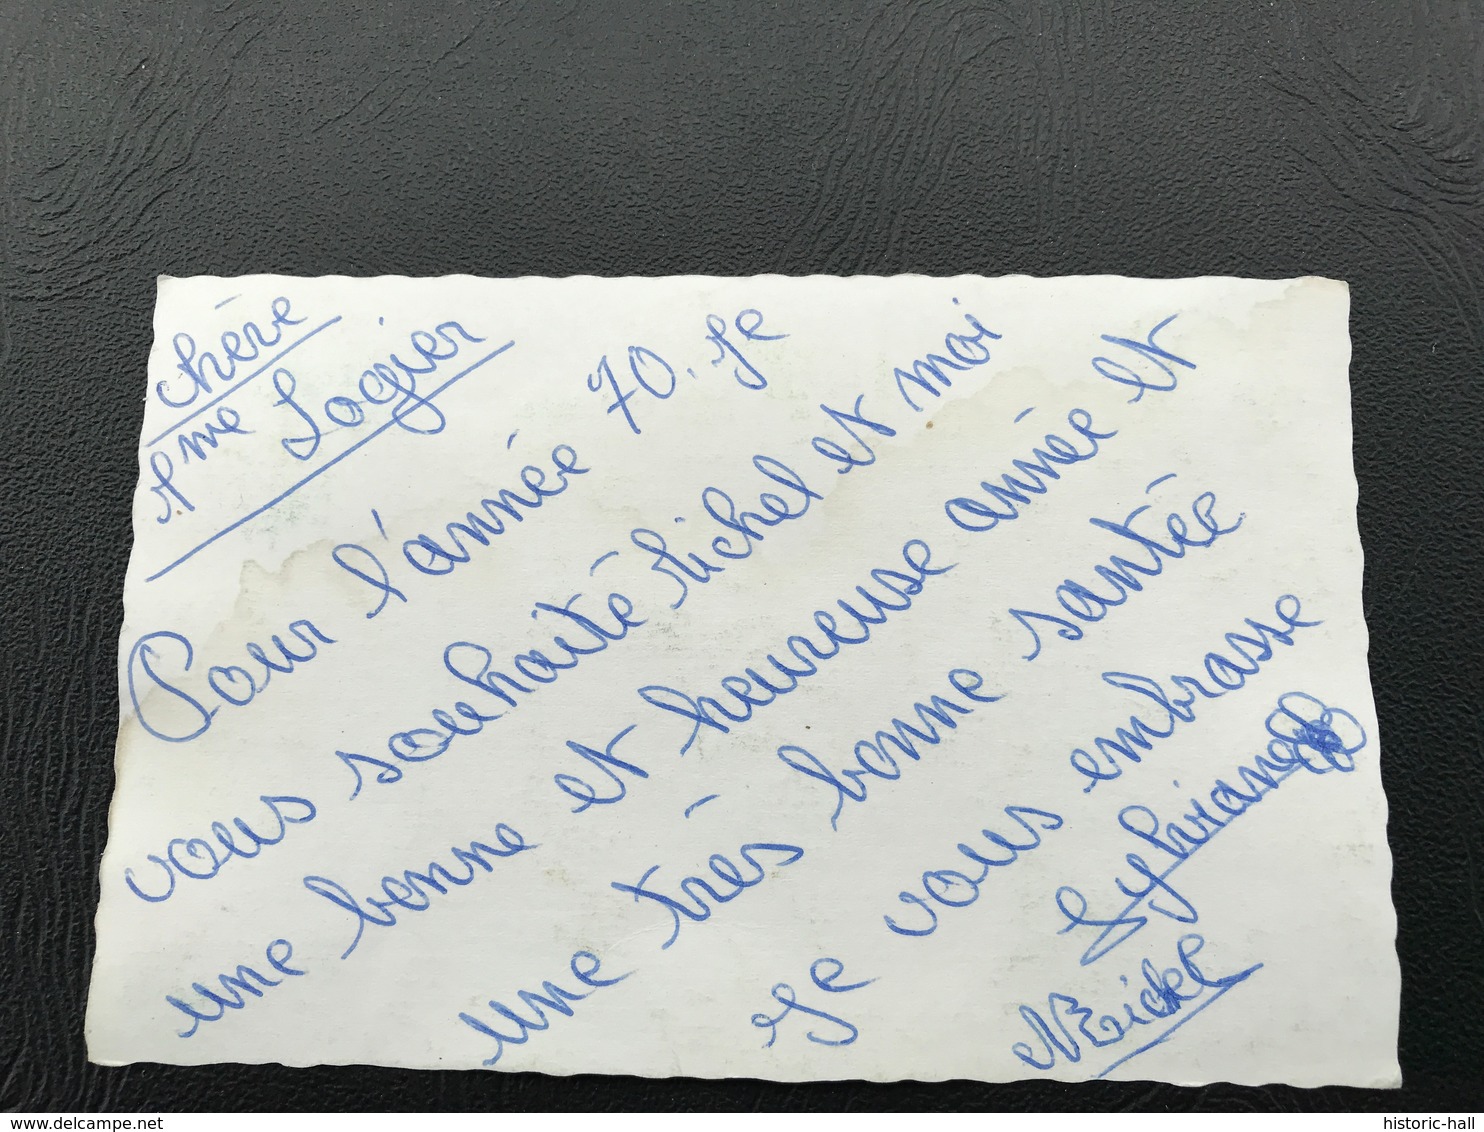 chère
Mme Logier
Pour l'année 70. Je
vous souhaité Michel et moi
une bonne et heureuse année et
une très bonne santée
Je vous embrasse
Sylviane
Michel
historic-hall
delcampe.net